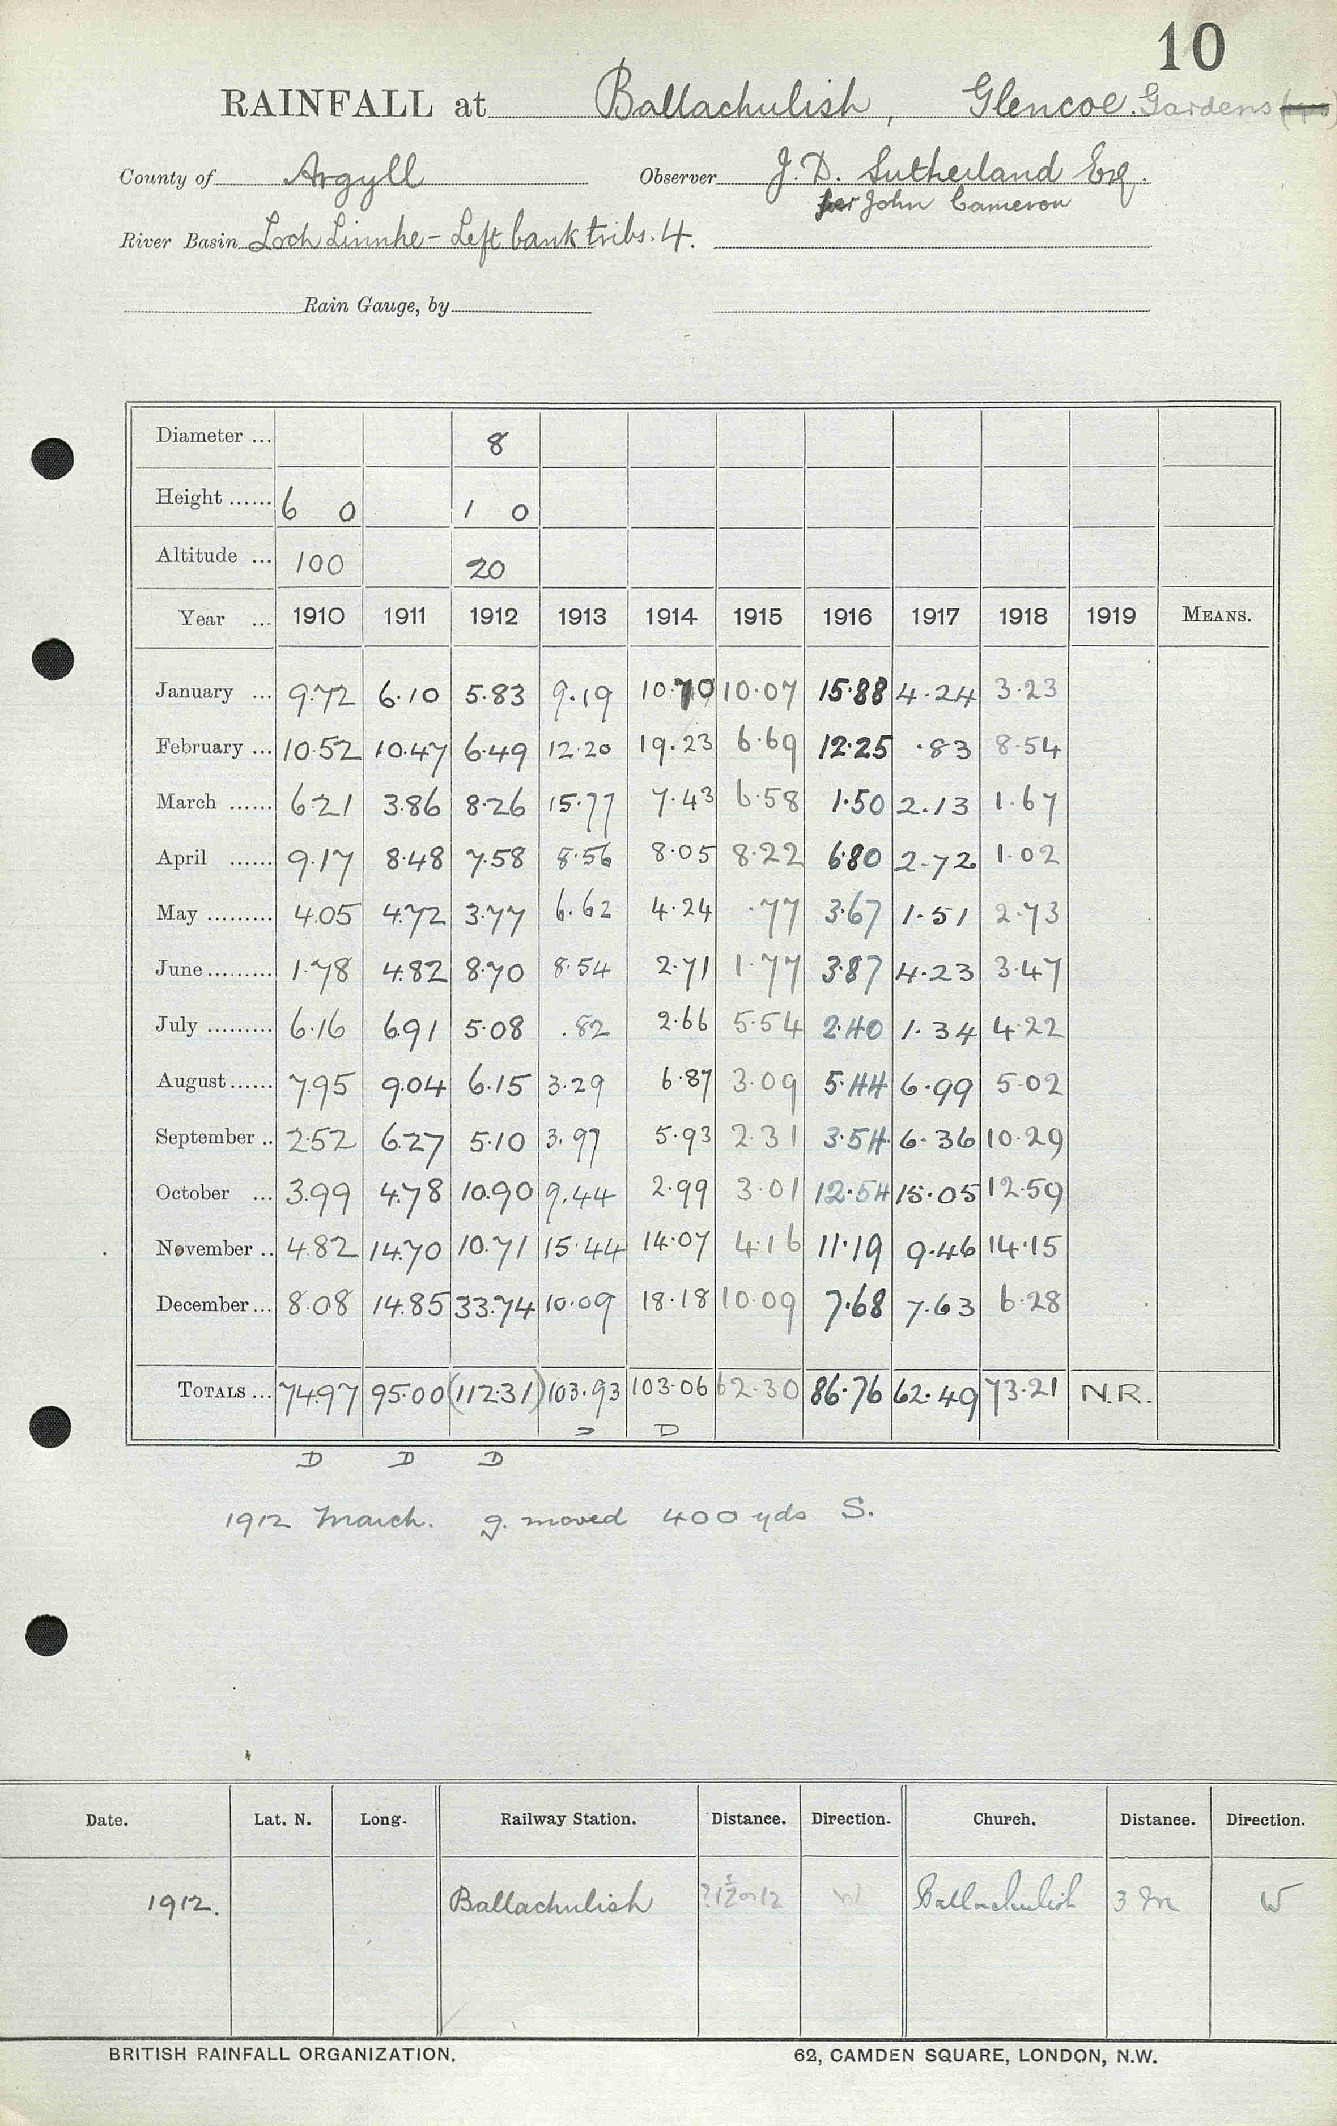 10
RAINFALL at Ballachulish, Glencoe. Gardens
County of Argyll Observer J. D. Sutherland Esq.
per John Cameron
River Basin Loch Linnhe - Left bank tribs. 4.
Rain Gauge, by
Diameter ... 8
Height ...... 6 0 1 0
Altitude ... 100 20
Year ... 1910 1911 1912 1913 1914 1915 1916 1917 1918 1919 MEANS.
January ... 9.72 6.10 5.83 9.19 10.70 10.07 15.88 4.24 3.23
February ... 10.52 10.47 6.49 12.20 19.23 6.69 12.25 .83 8.54
March ...... 6.21 3.86 8.26 15.77 7.43 6.58 1.50 2.13 1.67
April ...... 9.17 8.48 7.58 8.56 8.05 8.22 6.80 2.72 1.02
May ......... 4.05 4.72 3.77 6.62 4.24 .77 3.67 1.51 2.73
June ......... 1.78 4.82 8.70 8.54 2.71 1.77 3.87 4.23 3.47
July ......... 6.16 6.91 5.08 .82 2.66 5.54 2.40 1.34 4.22
August ...... 7.95 9.04 6.15 3.29 6.87 3.09 5.44 6.99 5.02
September .. 2.52 6.27 5.10 3.97 5.93 2.31 3.54 6.36 10.29
October ... 3.99 4.78 10.90 9.44 2.99 3.01 12.54 15.05 12.59
November .. 4.82 14.70 10.71 15.44 14.07 4.16 11.19 9.46 14.15
December ... 8.08 14.85 33.74 10.09 18.18 10.09 7.68 7.63 6.28
TOTALS ... 74.97 95.00 (112.31) 103.93 103.06 62.30 86.76 62.49 73.21 N.R.
D D
D D D
1912 March. g. moved 400 yds S.
Date. Lat. N. Long. Railway Station. Distance. Direction. Church. Distance. Direction.
1912. Ballachulish W Ballachulish 3 m W
BRITISH RAINFALL ORGANIZATION. 62, CAMDEN SQUARE, LONDON, N.W.